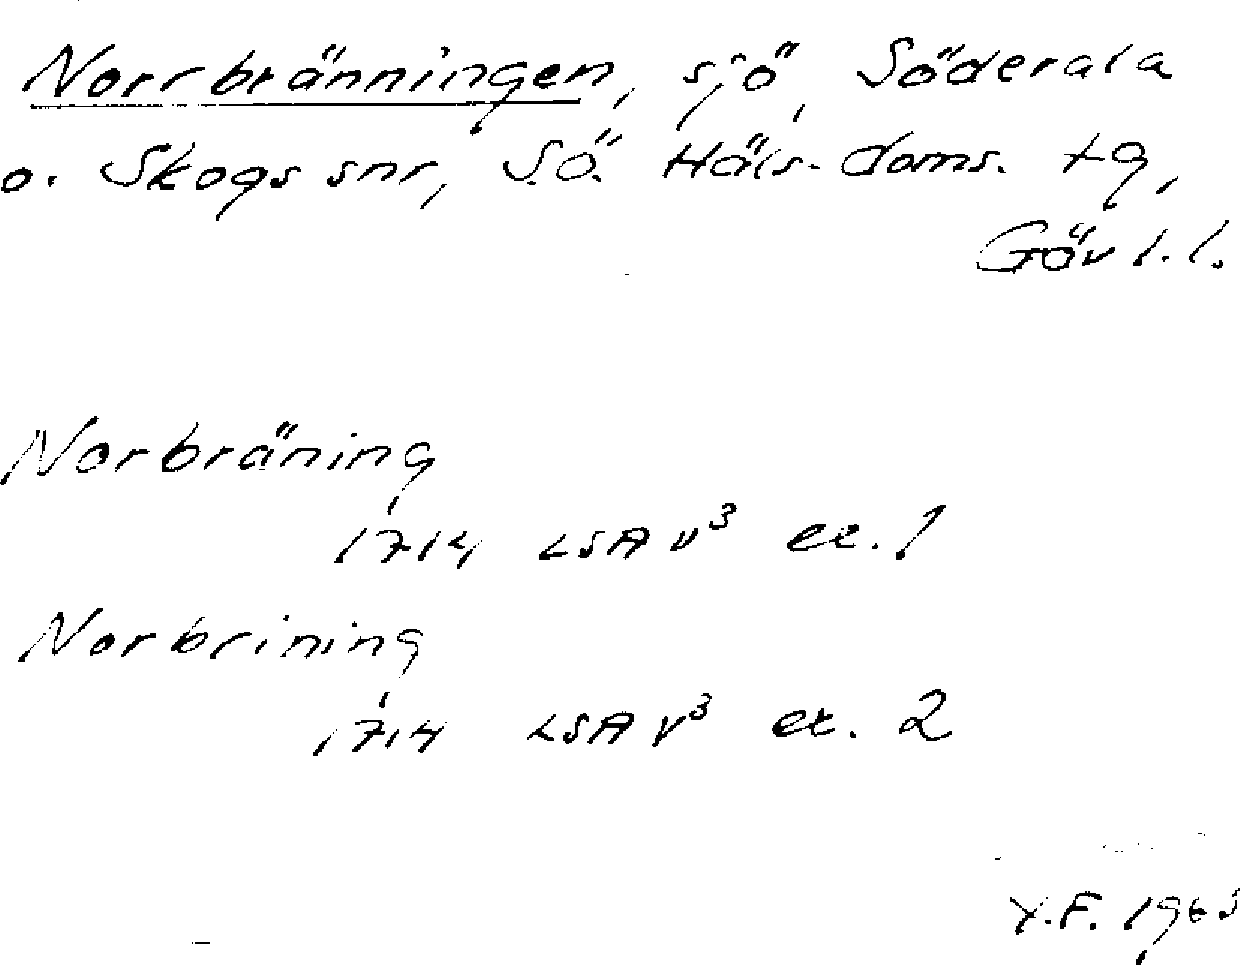 Norrbränningen, sjö, Söderala
o. Skogs snr, S.ö. Häls. doms. tg,
Gävl. l.
Norbräning
1714 LSA V³ ex. 1
Norbrining
1714 LSA V³ ex. 2
Y.F. 1963